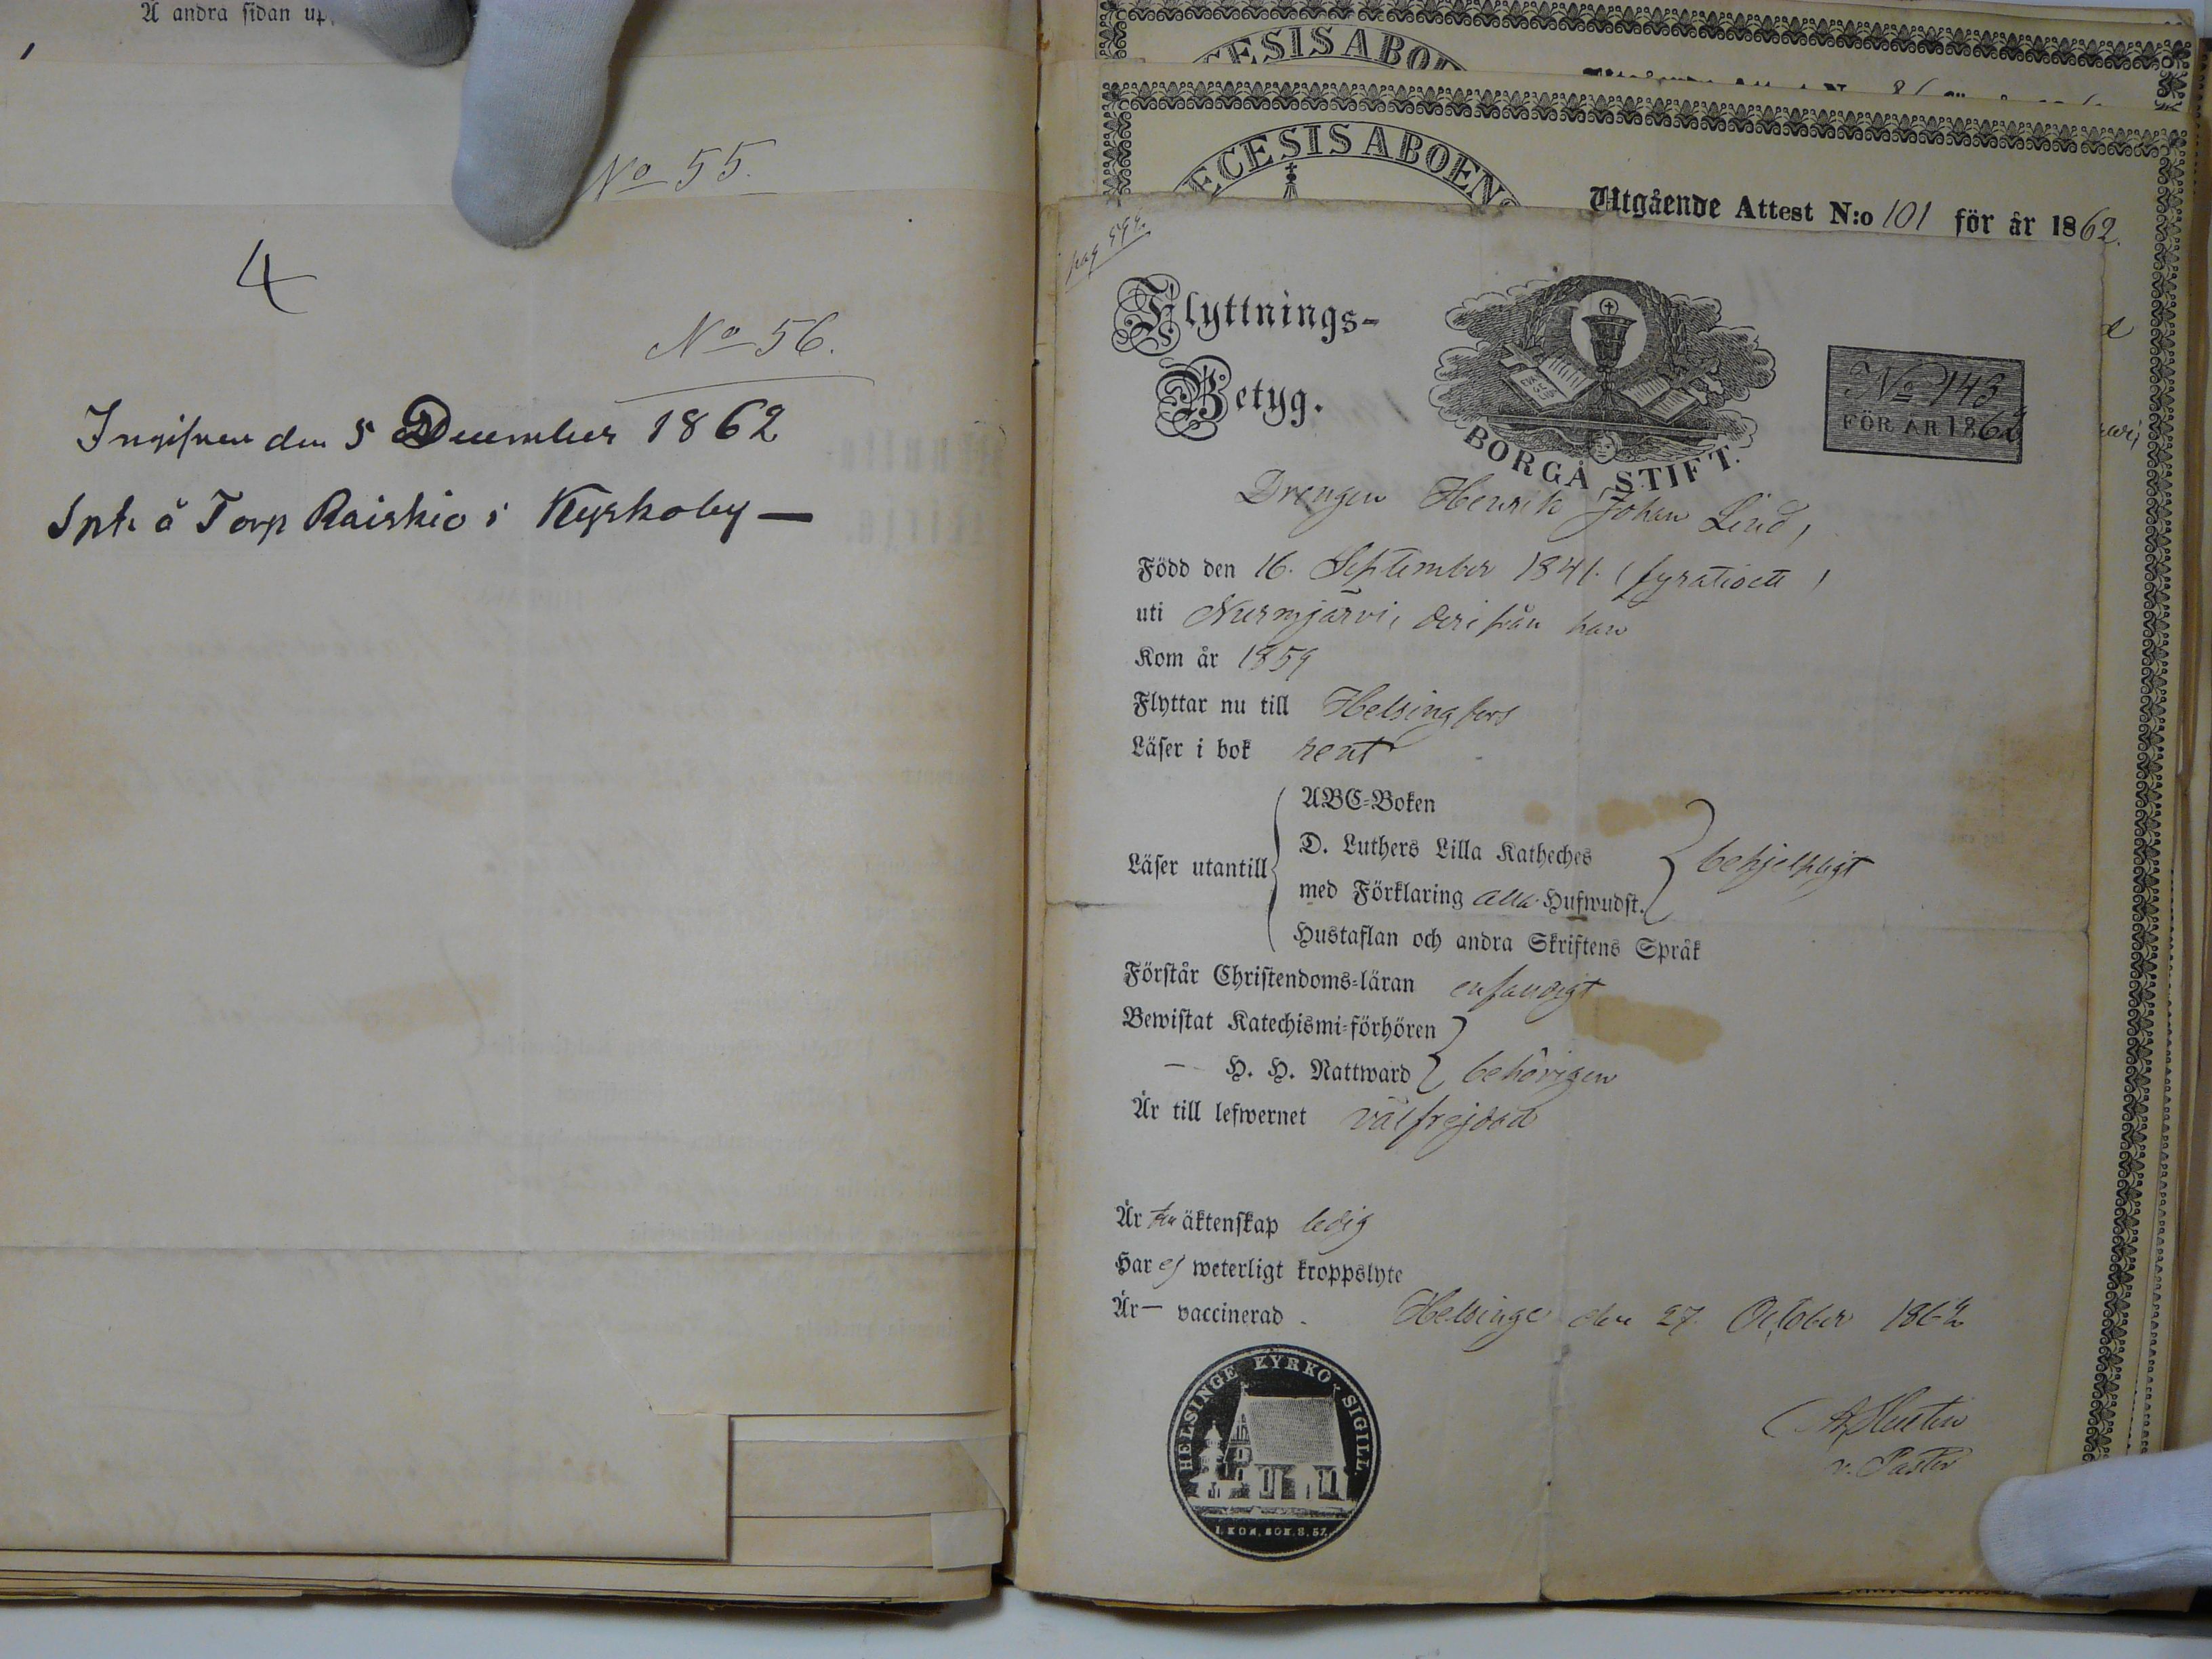 Å andra sidan up
No 55.
4
No 56.
Ingifven den 5 December 1862
Sptr å Torp Raiskio i Kyrkoby —
ECESIS ABO
ECESIS ABOENS
Utgående Attest N:o 101 för år 1862.
pag 594.
Flyttnings-
Betyg.
BORGÅ STIFT.
No 143
FÖR ÅR 1862
Drengen Henrik Johan Lind,
Född den 16. September 1841. (fyratioett)
uti Nurmjärvi, derifrån han
Kom år 1859
Flyttar nu till Helsingfors
Läser i bok rent
ABC-Boken
D. Luthers Lilla Katheches
Läser utantill behjelpligt
med Förklaring alla Hufwudst.
Hustaflan och andra Skriftens Språk
Förstår Christendoms-läran enfaldigt
Bewistat Katechismi-förhören
— H. H. Nattward behörigen
Är till lefwernet välfrejdad
Är till äktenskap ledig
Har ej weterligt kroppslyte
Är — vaccinerad. Helsinge den 27. October 1862
HELSINGE KYRKO SIGILL.
I. KON. BOK. 8, 57.
v. Pastor